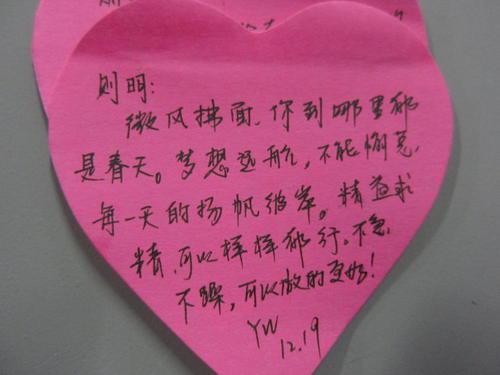 则明:
微风拂面、你到哪里都
是春天。梦想远航,不能懈怠,
每一天的扬帆彼岸。精益求
精,可以样样都行。不急
不躁,可以做的更好!
YW
12.19